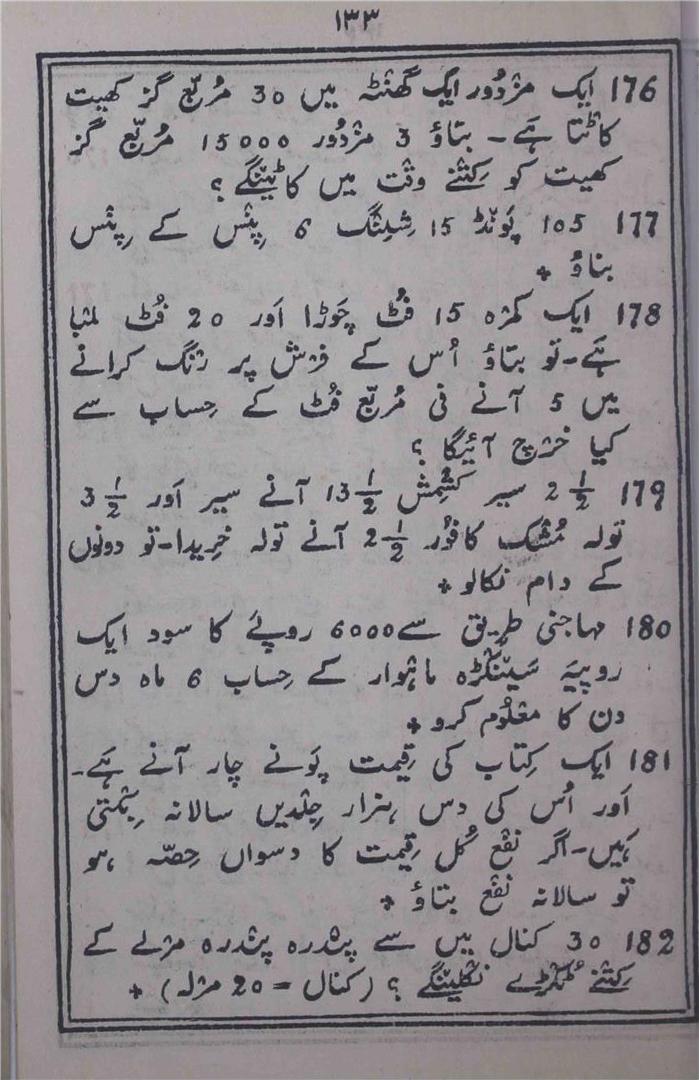 ۱۳۳
176 ایک مزدُور ایک گھنٹہ میں 30 مُربّع گز کھیت
کاٹتا ہَے۔ بتاؤ 3 مزدُور 15000 مُربّع گز
کھیت کو کِتنے وقت میں کاٹینگے ؟
177 105 پَونڈ 15 شِلِنگ 6 پِنس کے پِنس
بناؤ +
178 ایک کمرہ 15 فُٹ چَوڑا اَور 20 فُٹ لمبا
ہَے۔تو بتاؤ اُس کے فرش پر رنگ کرانے
میں 5 آنے فی مُربّع فُٹ کے حِساب سے
کیا خرچ آئیگا ؟
179 2 1/2 سیر کشمِش 13 1/2 آنے سیر اَور 3 1/2
تولہ مُشک کافُور 2 1/2 آنے تولہ خریدا۔تو دونوں
کے دام نکالو +
180 مہاجنی طرِیق سے 6000 روپئے کا سود ایک
روپیَہ سَینکڑہ ماہوار کے حِساب 6 ماہ دس
دن کا معلُوم کرو +
181 ایک کِتاب کی قِیمت پَونے چار آنے ہَے۔
اَور اُس کی دس ہزار جِلدیں سالانہ بِکتی
ہَیں۔اگر نفع کُل قِیمت کا دسواں حِصّہ ہو
تو سالانہ نفع بتاؤ +
182 30 کنال میں سے پندرہ پندرہ مرلے کے
کِتنے ٹُکڑے نکلینگے ؟ (کنال = 20 مرلہ) +